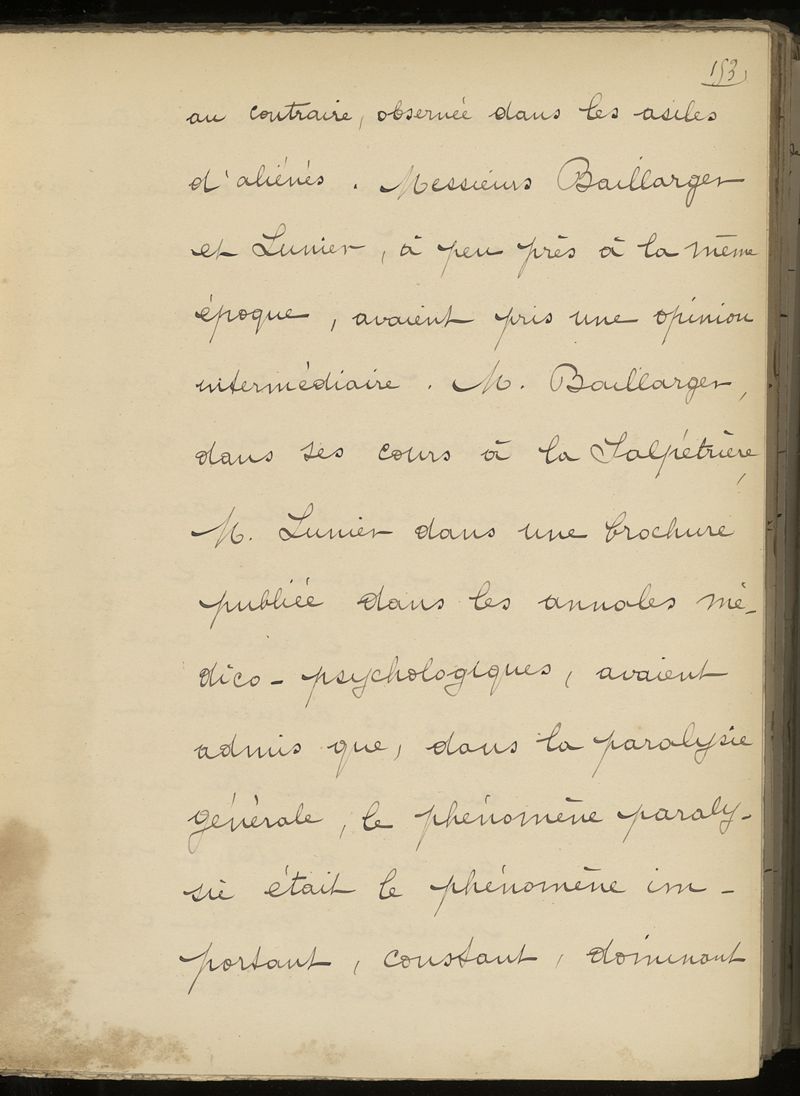 153
au contraire, observée dans les asiles
d'aliénés. Messieurs Baillarger
et Lunier, à peu près à la même
époque, avaient pris une opinion
intermédiaire. M. Baillarger,
dans ses cours à la Salpétrière,
M. Lunier dans une brochure
publiée dans les annales mé-
dico-psychologiques, avaient
admis que, dans la paralysie
générale, le phénomène paraly-
sie était le phénomène im-
portant, constant, dominant